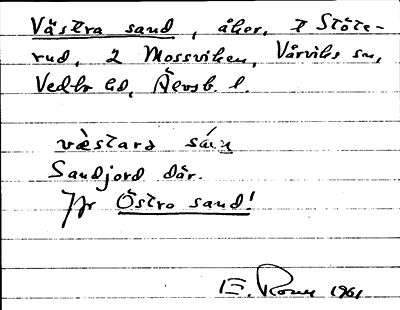 Västra sand, åker, I Stöte-
rud, 2 Mossviken, Vårviks sn,
Vedbo hd, Älvsb. l.
væ̀stara sán
Sandjord där.
Jfr Östra sand!
E. 1961